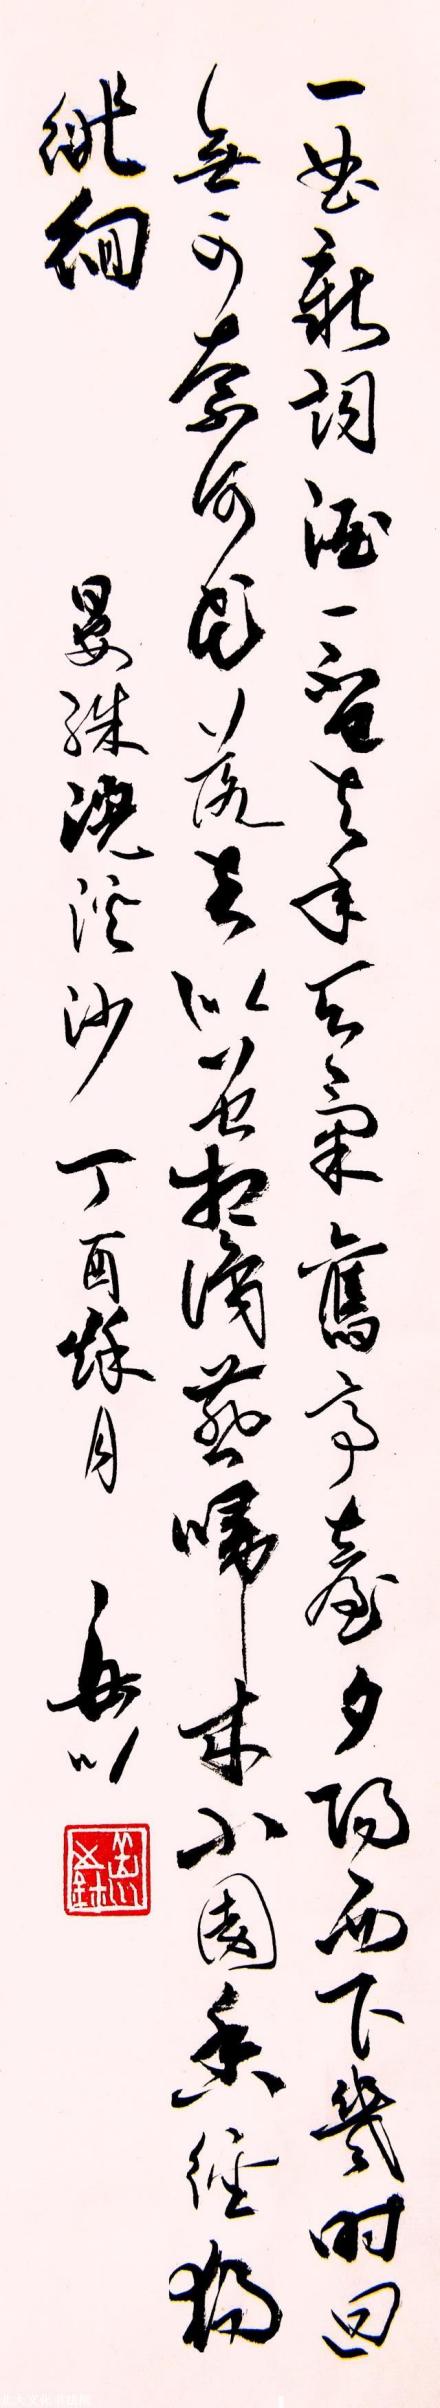 一曲新詞酒一杯去年天氣舊亭臺夕陽西下幾時回
無可奈何花落去似曾相識燕歸來小園香徑獨
徘徊
晏殊浣溪沙 丁酉秋月